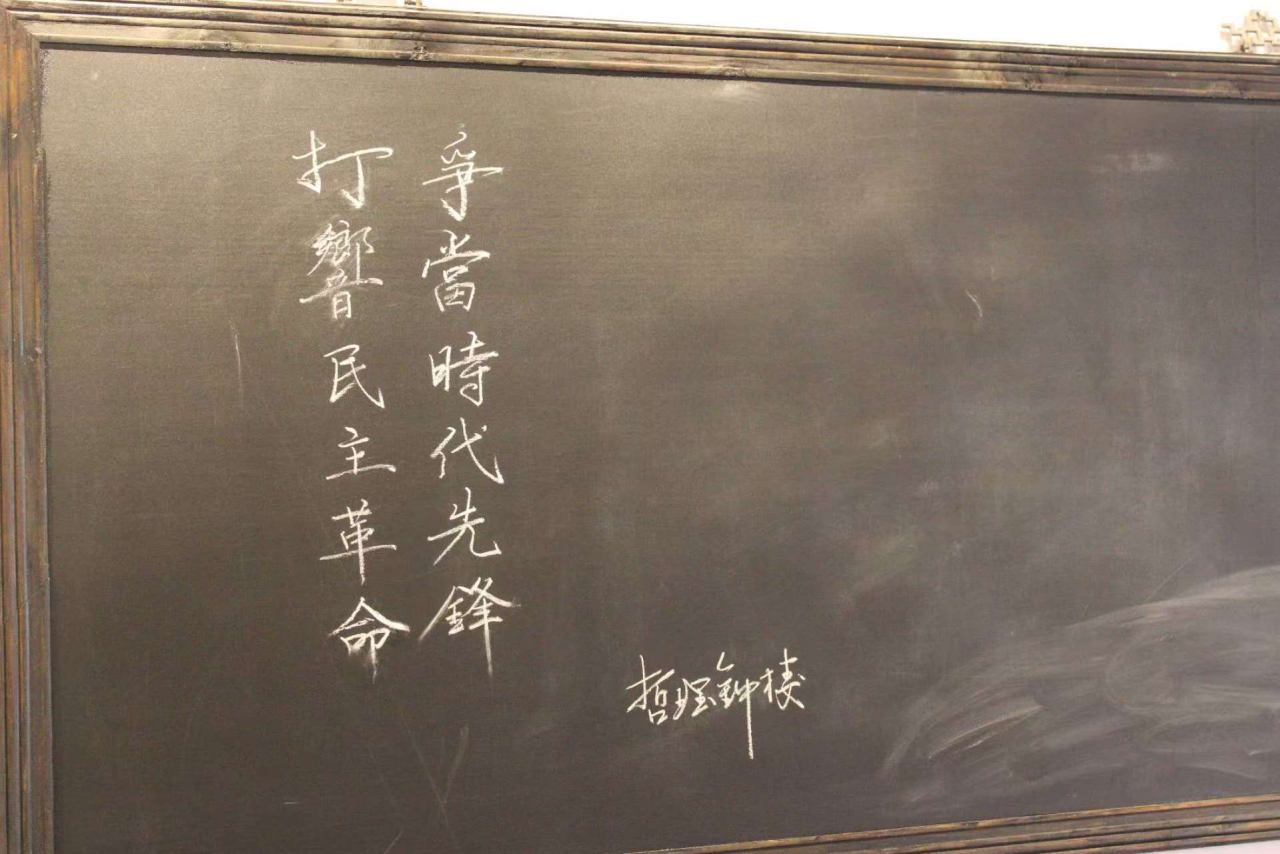 爭當時代先鋒
打響民主革命
哲理鐘楼